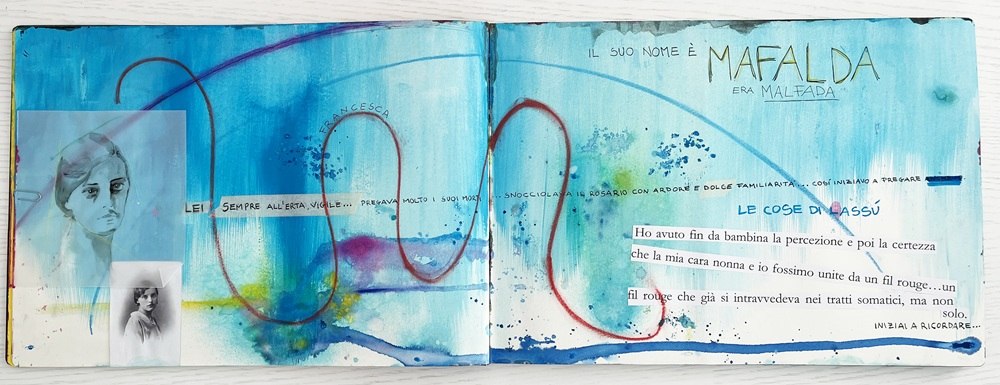 FRANCESCA
LEI SEMPRE ALL'ERTA, VIGILE... PREGAVA MOLTO I SUOI MORTI
IL SUO NOME È
MAFALDA
ERA MALFADA
SNOCCIOLAVA IL ROSARIO CON ARDORE E DOLCE FAMILIARITÀ... COSÍ INIZIAVO A PREGARE
LE COSE DI LASSÚ
Ho avuto fin da bambina la percezione e poi la certezza
che la mia cara nonna e io fossimo unite da un fil rouge…un
fil rouge che già si intravvedeva nei tratti somatici, ma non
solo.
INIZIAI A RICORDARE...